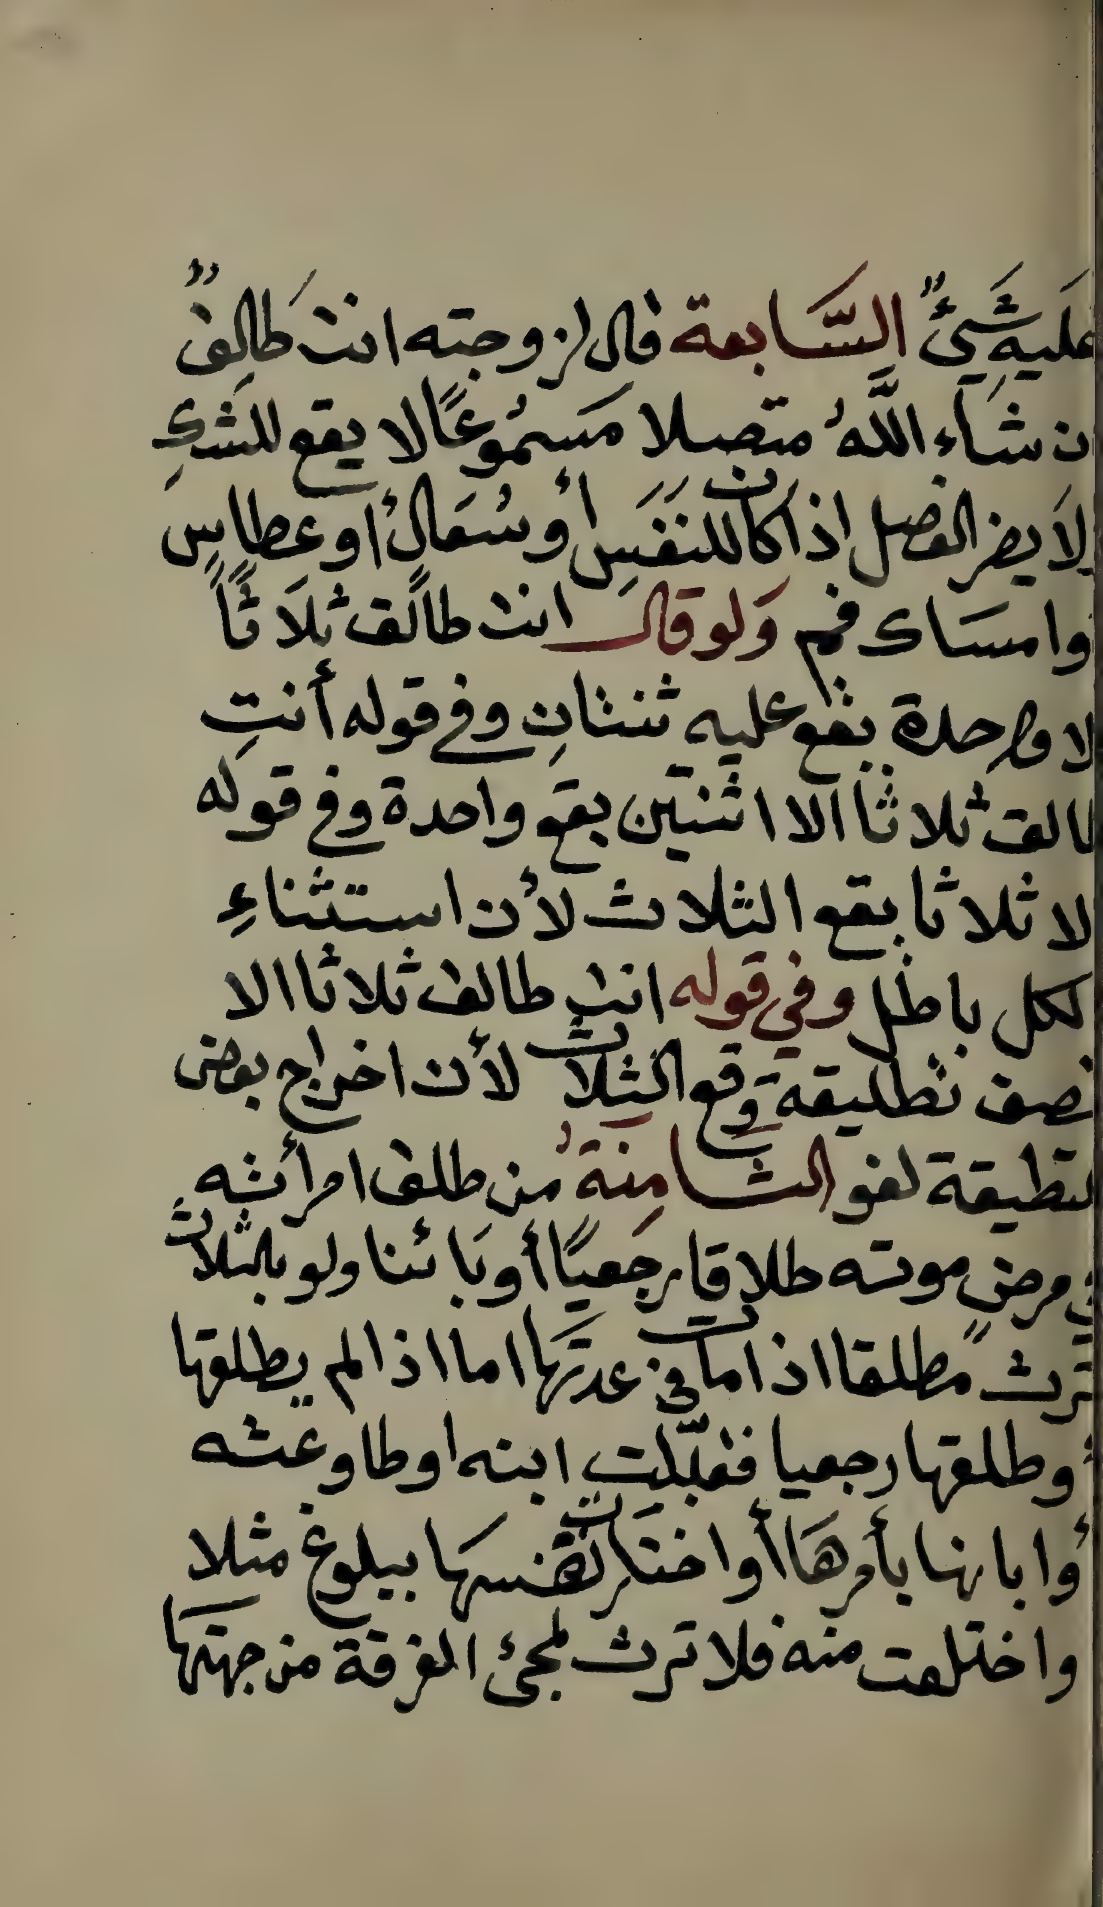 عَليهِ شَيئٌ السَّابعة قال لزوجته انت طَالِقٌ
ان شاء اللَّهُ متصلا مَسمُوعًا لا يقع للشكِ
ولَا يضر الفصل اذا كان للنفَسِ أو سُعَالٍ أو عطاسِ
أوامساك فم وَلو قال انت طالق ثلَاثاً
الا واحدة يقع عليه ثنتانِ وفي قوله أنتِ
طالق ثلاثا الا اثنتين يقع واحدة وفي قوله
الا ثلاثا يقع الثلاث لأن استثناءِ
الكل باطل وفي قوله انت طالق ثلاثا الا
نصف تطليقة وقع الثلاث لأن اخراج بعض
التطليقة لغو الثامِنةُ من طلق امرأته
في مرض موته طلاقا رجعيًا أو بَائنا ولو بالثلاث
ترث مطلقا اذا مات في عدتها اما اذا لم يطلقها
أو طلقها رجعيا فقبّلت ابنه او طاوعته
أو ابانها بأمرهَا أو اختارت نفسها ببلوغ مثلا
واختلعت منه فلا ترث لمجئ الفرقة من جهتها